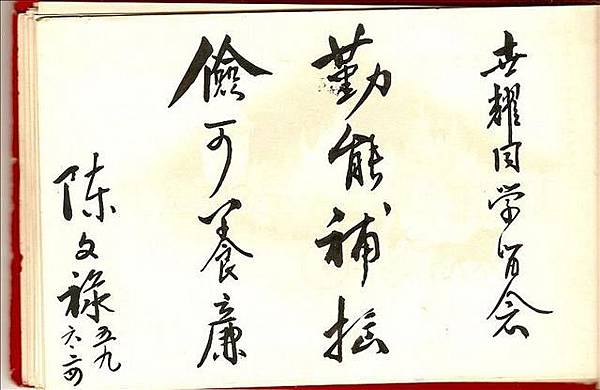 世耀同学留念
勤能補拙
儉可養廉
陈文祿
五九